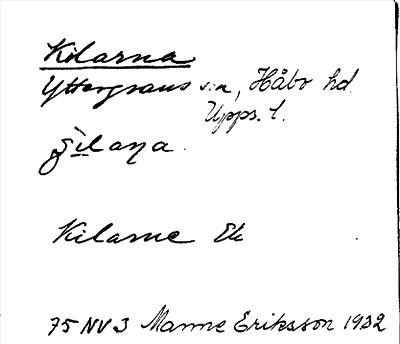 Kilarna
Yttergrans s:n, Håbo hd
Upps. l.
Kilarne Ek
75 NV 3 Manne Eriksson 1932